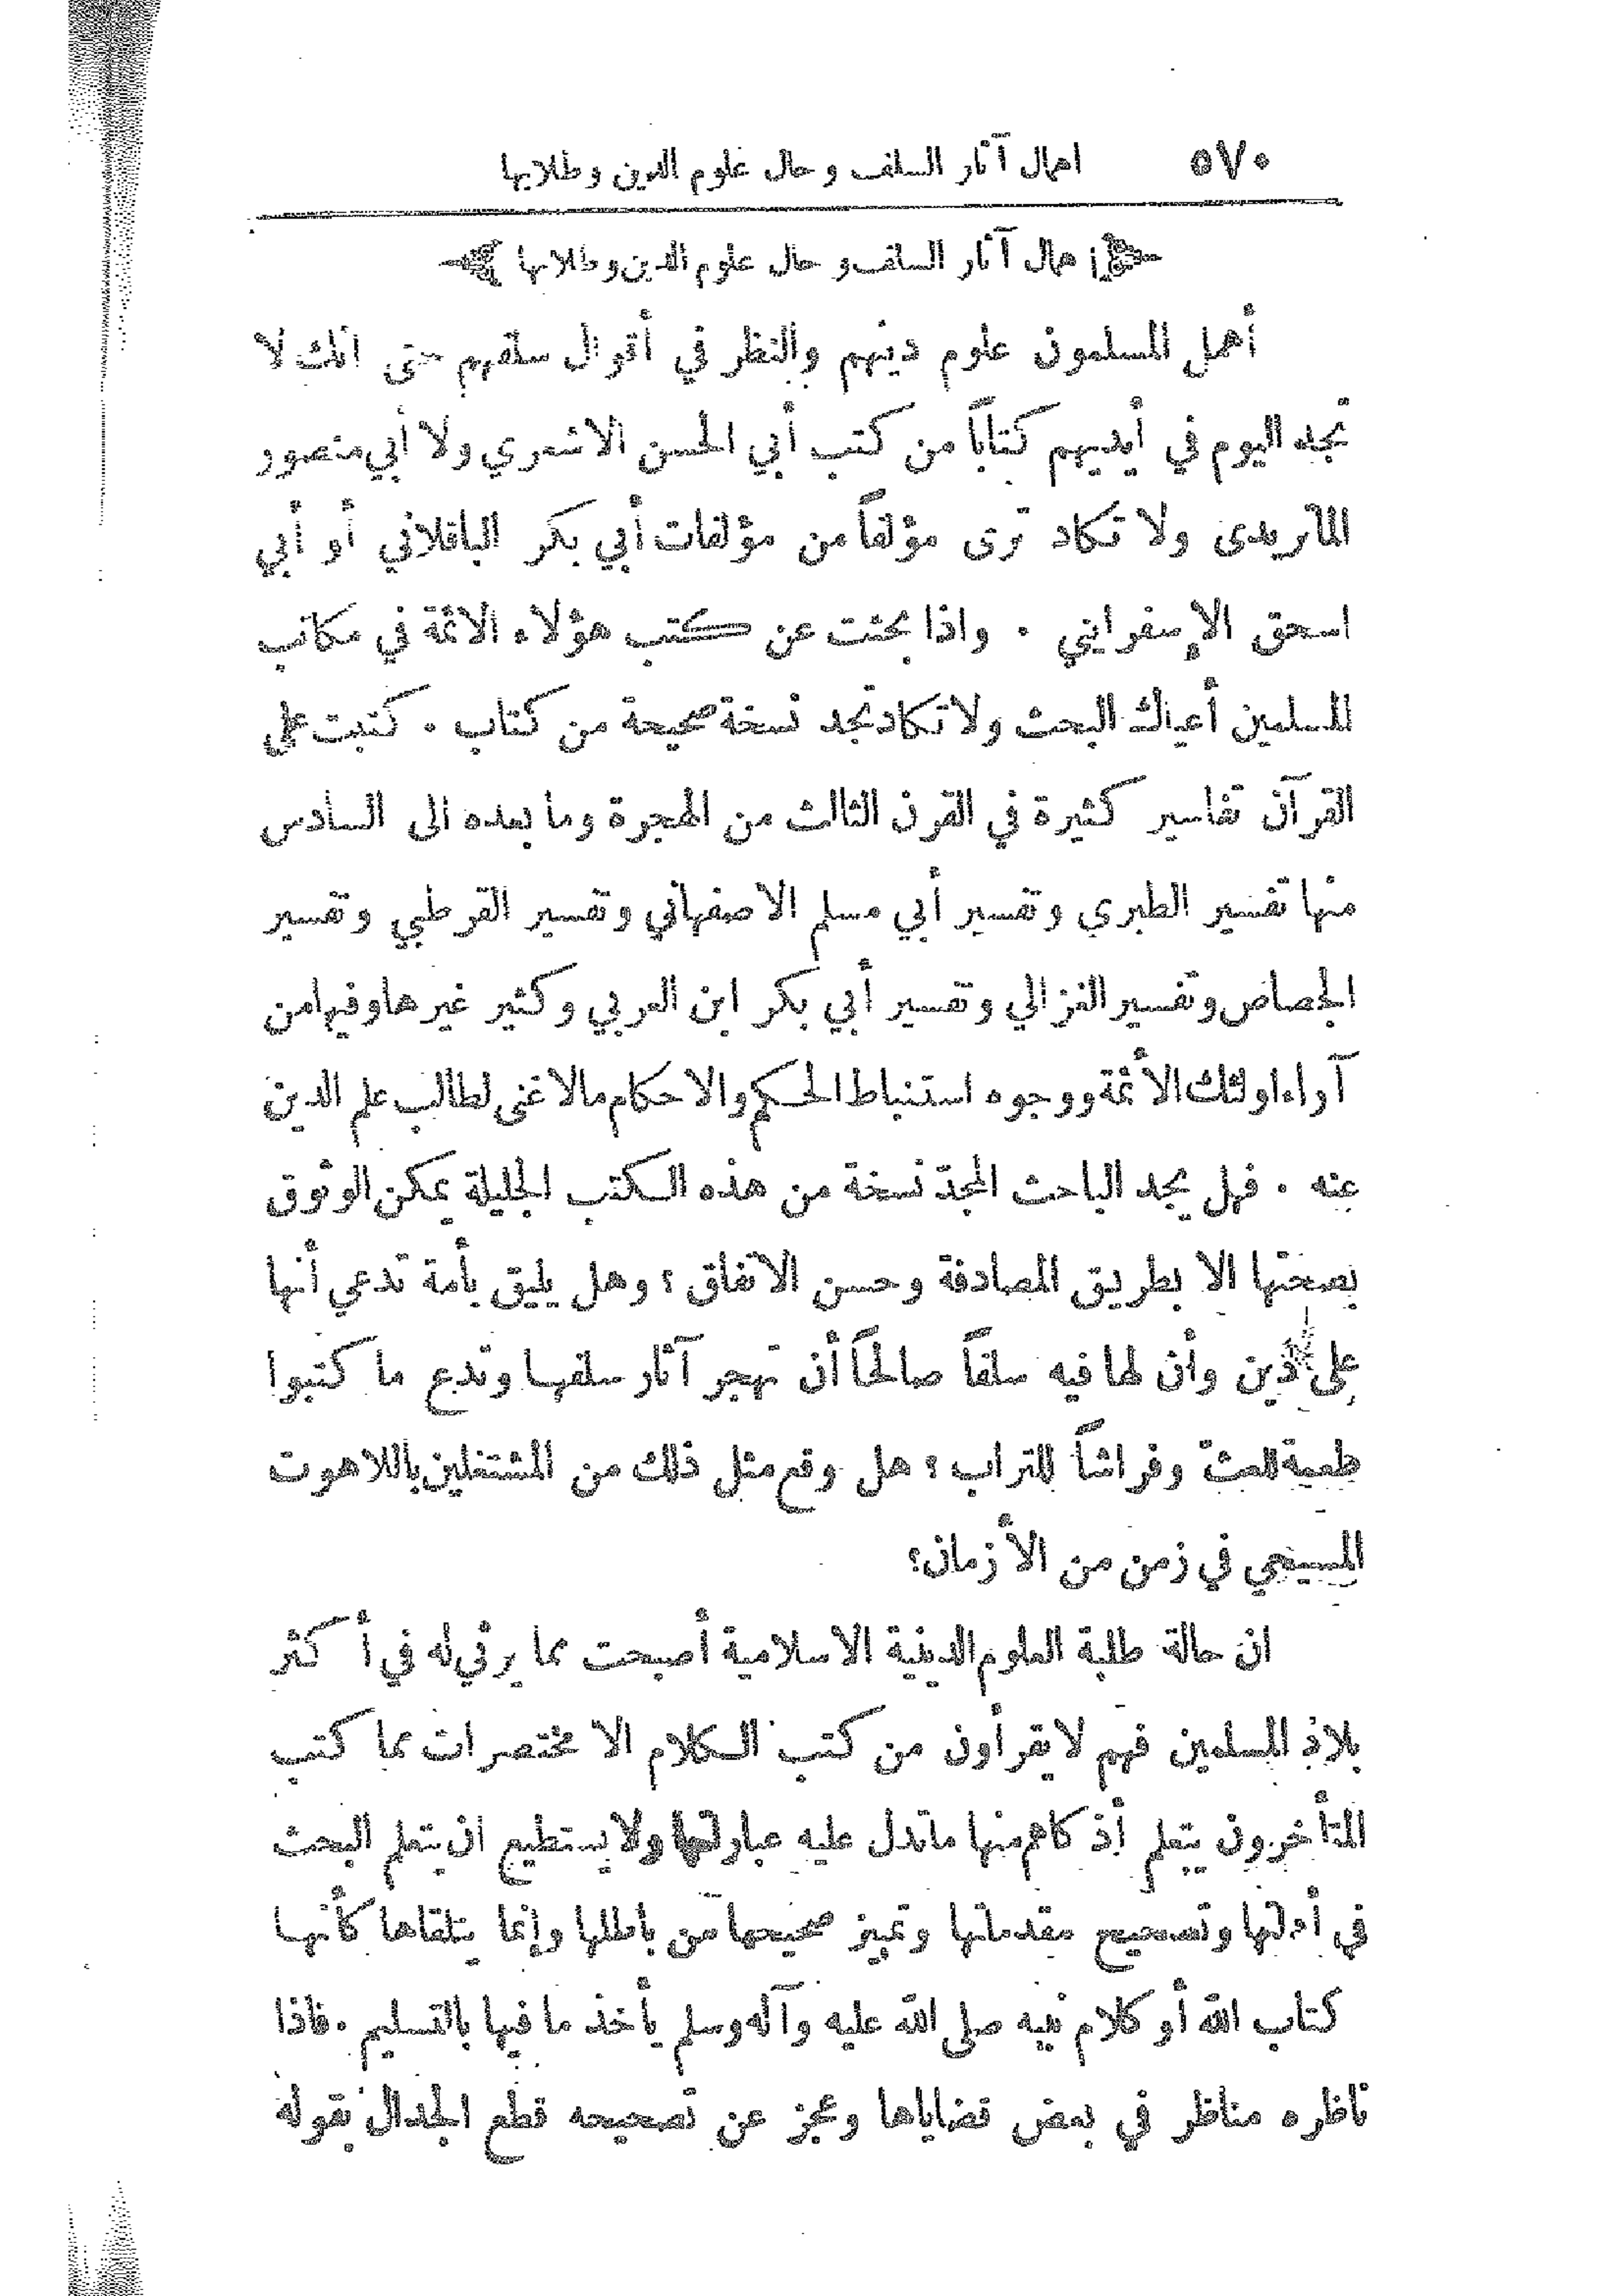 ٥٧٠ اهمال آثار السلف وحال علوم الدين وطلابها
اهمال آثار السلف وحال علوم الدين وطلابها
أهمل المسلمون علوم دينهم والنظر في أقوال سلفهم حتى انك لا
تجد اليوم في أيديهم كتاباً من كتب أبي الحسن الاشعري ولا أبي منصور
الماتريدى ولا تكاد ترى مؤلفاً من مؤلفات أبي بكر الباقلاني أو أبي
اسحق الإسفرايني . واذا بحثت عن كتب هؤلاء الائمة في مكاتب
المسلمين أعياك البحث ولا تكاد تجد نسخة صحيحة من كتاب . كتبت على
القرآن تفاسير كثيرة في القرن الثالث من الهجرة وما بعده الى السادس
منها تفسير الطبري وتفسير أبي مسلم الاصفهاني وتفسير القرطبي وتفسير
الجصاص وتفسير الغزالي وتفسير أبي بكر ابن العربي وكثير غيرها وفيها من
آراء اولئك الأئمة ووجوه استنباط الحكم والاحكام مالا غنى لطالب علم الدين
عنه . فهل يجد الباحث المجدّ نسخة من هذه الكتب الجليلة يمكن الوثوق
بصحتها الا بطريق المصادفة وحسن الاتفاق ؟ وهل يليق بأمة تدعي أنها
على دين وأن لها فيه سلفاً صالحاً أن تهجر آثار سلفها وتدع ما كتبوا
طعمة للعثّ وفراشاً للتراب ؟ هل وقع مثل ذلك من المشتغلين باللاهوت
المسيحي في زمن من الأزمان؟
ان حالة طلبة العلوم الدينية الاسلامية أصبحت مما يرثى له في أكثر
بلاد المسلمين فهم لا يقرأون من كتب الكلام الا مختصرات مما كتب
المتأخرون يتعلم أذكاهم منها ما تدل عليه عباراتها ولا يستطيع ان يتعلم البحث
في أدلتها وتصحيح مقدماتها وتمييز صحيحها من باطلها وإنما يتلقاها كأنها
كتاب الله أو كلام نبيه صلى الله عليه وآله وسلم يأخذ ما فيها بالتسليم . فاذا
ناظره مناظر في بعض قضاياها وعجز عن تصحيحه قطع الجدال بقوله